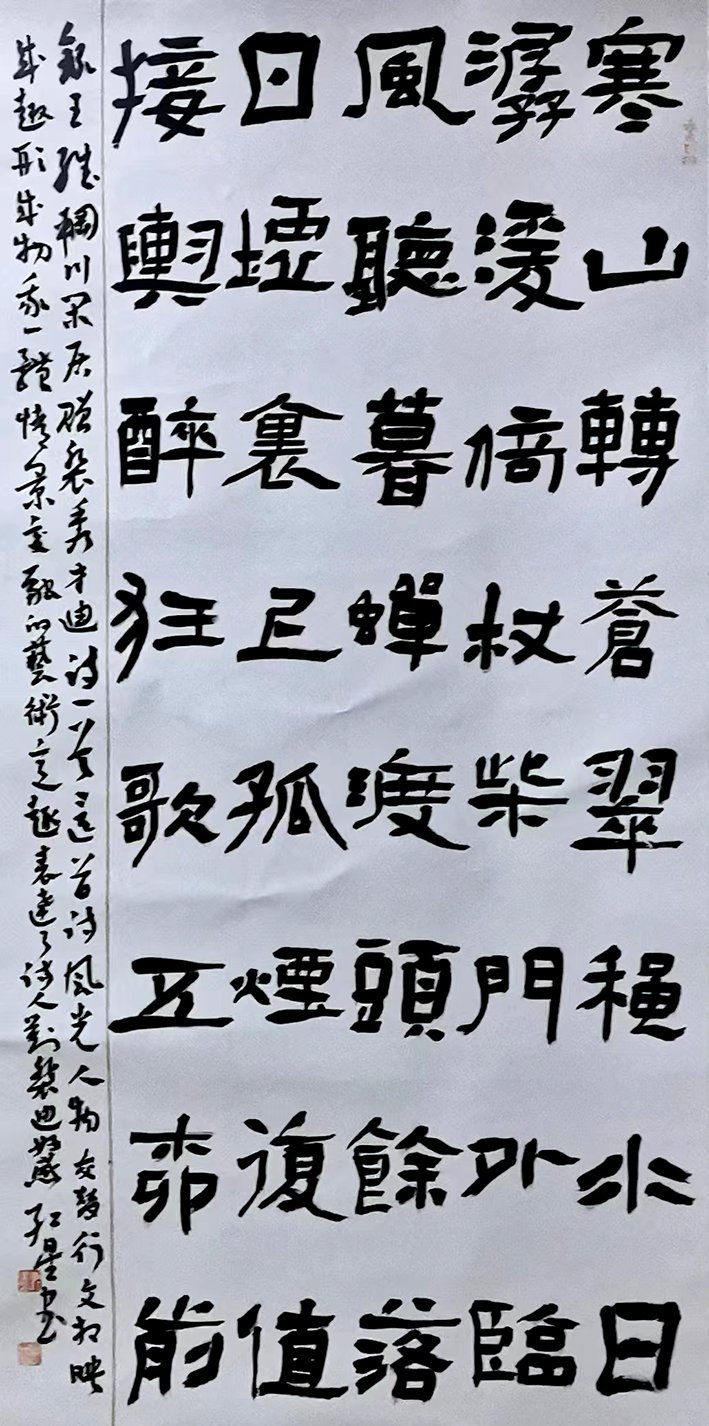 寒山轉蒼翠穐水日
潺湲倚杖柴門外臨
風聽暮蟬渡頭餘落
日墟裏上孤煙復值
接輿醉狂歌五柳前
錄王維輞川閑居贈裴秀才迪詩一首這首詩風光人物交替行文相映
成趣形成物我一體情景交融的藝術意趣表達了詩人對裴迪好感 紅星書